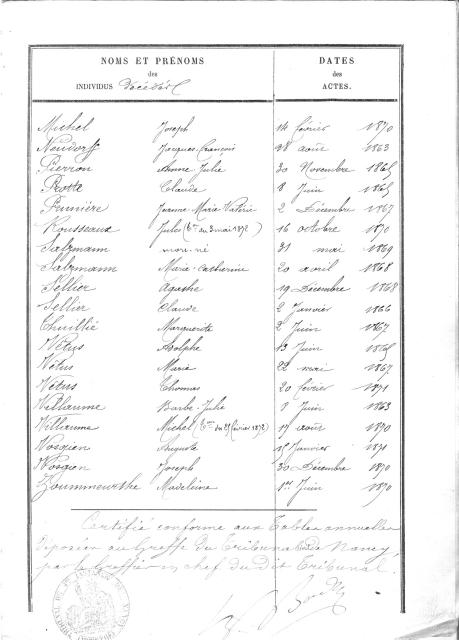 NOMS ET PRÉNOMS DATES
des des
INDIVIDUS décédés ACTES.
Michel Joseph 14 février 1870
Neudorff Jacques François 28 août 1863
Pierron Anne Julie 30 Novembre 1865
Protte Claude 8 Juin 1865
Prunière Jeanne Marie Valérie 2 Décembre 1867
Rousseaux Jules ( du 3 mai 1872) 16 octobre 1870
Salzmann mort-né 31 mai 1869
Salzmann Marie Catherine 20 avril 1868
Sellier Agathe 19 Décembre 1868
Sellier Claude 2 Janvier 1866
Thuillié Marguerite 2 Juin 1867
Vétus Adolphe 13 Juin 1865
Vétus Marie 22 mai 1867
Vétus Thomas 20 février 1871
Villaume Barbe Julie 1 Juin 1863
Villiaume Michel ( du 25 février 1872) 17 août 1870
Vosgien Auguste 15 Janvier 1871
Vosgien Joseph 30 Décembre 1870
Madeleine 1er Juin 1870
Certifié conforme aux Tables annuelles
déposées au Greffe du Tribunal de Nancy,
par le Greffier en chef du dit Tribunal.